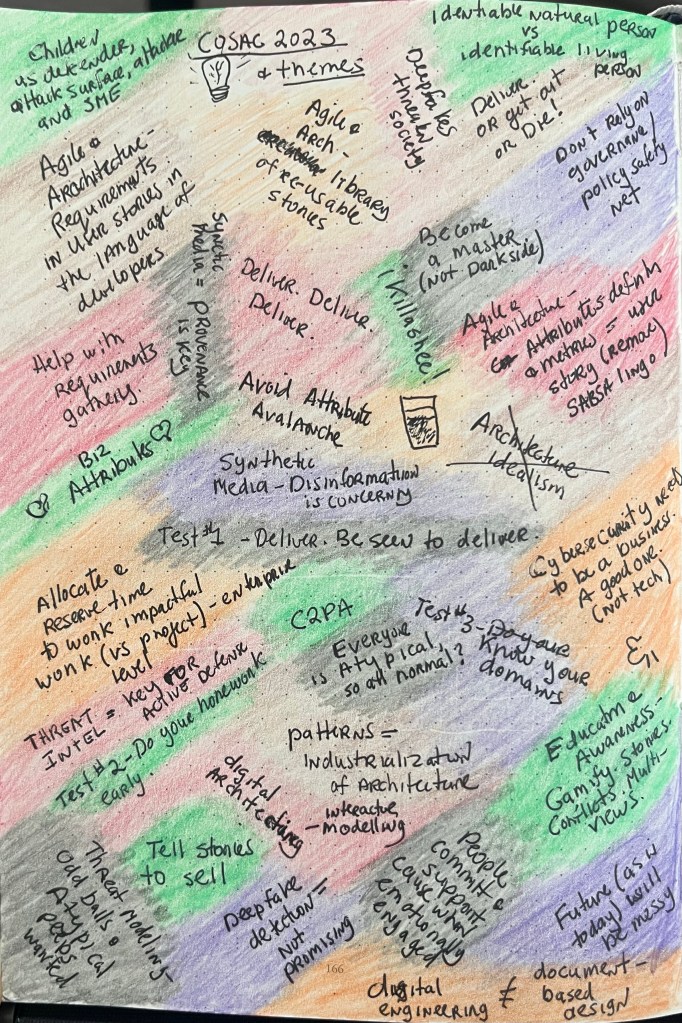 Children
as defender,
attack surface, attacker
and SME
COSAC 2023
& themes
Deepfakes
threaten
society
Identifiable natural person
vs
identifiable living
person
Deliver.
OR get out
OR Die!
Don't Rely on
governance/
policy safety
net
Agile &
Architecture -
Requirements
in user stories in
the language of
developers
Agile &
Arch -
library
of re-usable
stories
Synthetic
Media = PROVENANCE
is key
Deliver. Deliver.
Deliver.
Killashee!
Become
a master
(Not Darkside)
Agile &
Architecture -
Attributes definitn
& metrics = user
story (remove
SABSA lingo)
Help with
Requirements
gathery.
Avoid Attribute
Avalanche
Architecture
idealism
Biz
Attributes
Synthetic
Media - Disinformation
is concerny
Test #1 - Deliver. Be seen to deliver.
Cybersecurity need
to be a business.
A good one.
(not tech)
Allocate &
Reserve time
to work impactful
work (vs project) - enterprise
level
C2PA
Everyone
is Atypical,
so all normal?
Test #3 - Do you
Know your
domains
THREAT
INTEL = Key FOR
Active Defense
Test #2 - Do your homework
early.
patterns =
Industrialization
of Architecture
digital
Architecting
interactive
- modelling
Education &
Awareness -
Gamify. Stories.
Conflicts. Multi-
views.
Tell stories
to sell
Threat Modeling -
odd balls &
Atypical
peeps
wanted
Deepfake
detection =
Not
promising
People
commit &
support
cause when
emotionally
engaged
Future (as is
today) will
be messy
166
digital
engineering ≠
document-
based
design